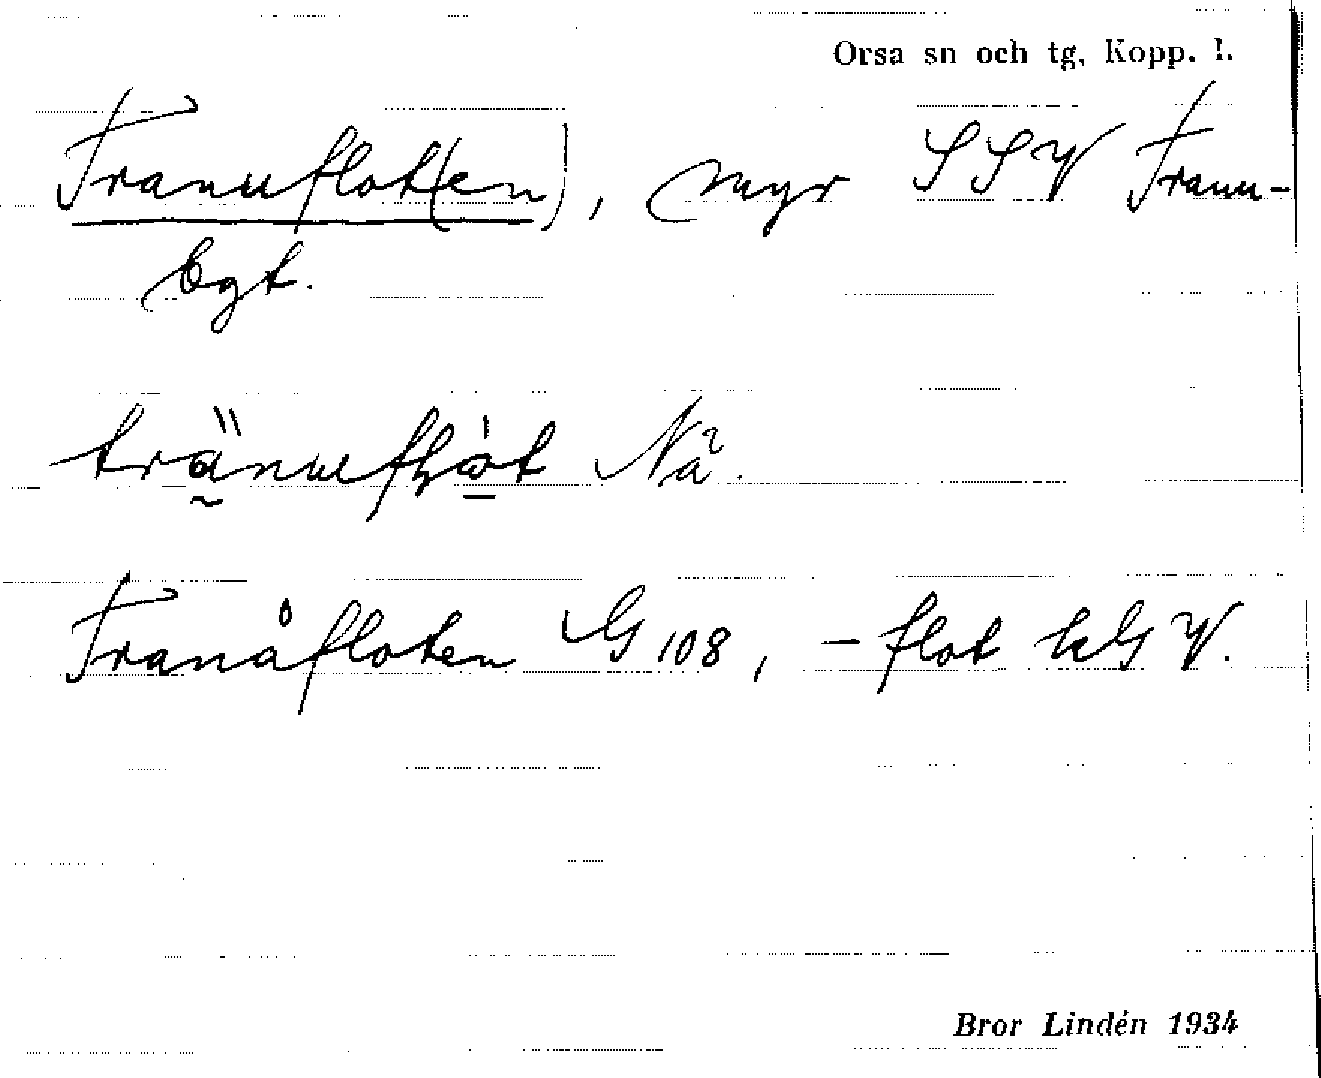 Orsa sn och tg, Kopp. l.
Tranuflot(en), myr SSV Tranu-
bgt.
Nå.
Tranåfloten G 108, -flot kGV.
Bror Lindén 1934